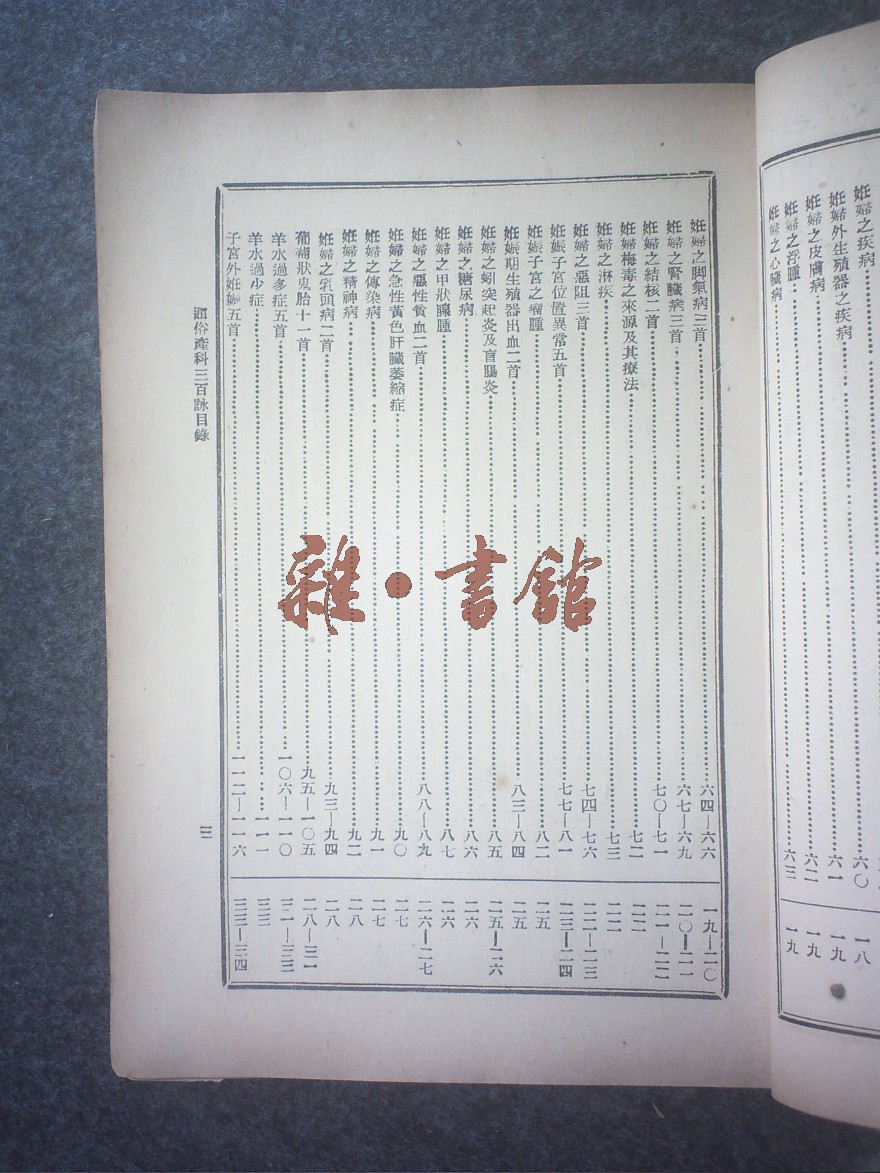 妊婦之疾病 六〇 一八
妊婦外生殖器之疾病 六一 一九
妊婦之皮膚病 六二 一九
妊婦之浮腫 六三 一九
妊婦之心臟病
妊婦之脚氣病三首 六四—六六 一九—二〇
妊婦之腎臟病三首 六七—六九 二〇—二一
妊婦之結核二首 七〇—七一 二一—二二
妊婦梅毒之來源及其療法 七二 二二
妊婦之淋疾 七三 二二
妊婦之惡阻三首 七四—七六 二二—二三
妊娠子宮位置異常五首 七七—八一 二三—二四
妊娠子宮之瘤腫 八二 二五
妊娠期生殖器出血二首 八三—八四 二五
妊婦之蚓突起炎及盲腸炎 八五 二五—二六
妊婦之糖尿病 八六 二六
妊婦之甲狀腺腫 八七 二六
妊婦之惡性貧血二首 八八—八九 二六—二七
妊婦之急性黃色肝臟萎縮症 九〇 二七
妊婦之傳染病 九一 二七
妊婦之精神病 九二 二八
妊婦之乳頭病二首 九三—九四 二八
葡萄狀鬼胎十一首 九五—一〇五 二八—三一
羊水過多症五首 一〇六—一一〇 三一—三三
羊水過少症 一一一 三三
子宮外妊娠五首 一一二—一一六 三三—三四
通俗產科三百詠目錄 三
雜·書館